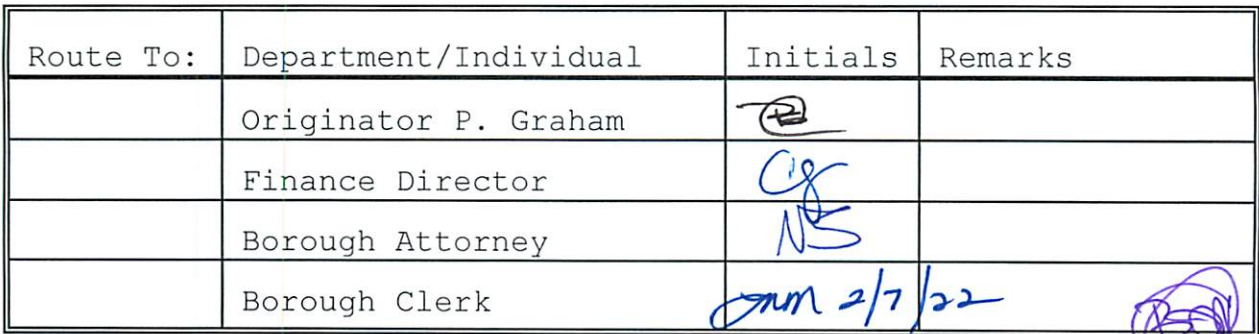 Route To: Department/Individual Initials Remarks
Originator P. Graham
Finance Director
Borough Attorney NS
Borough Clerk 2/7/22